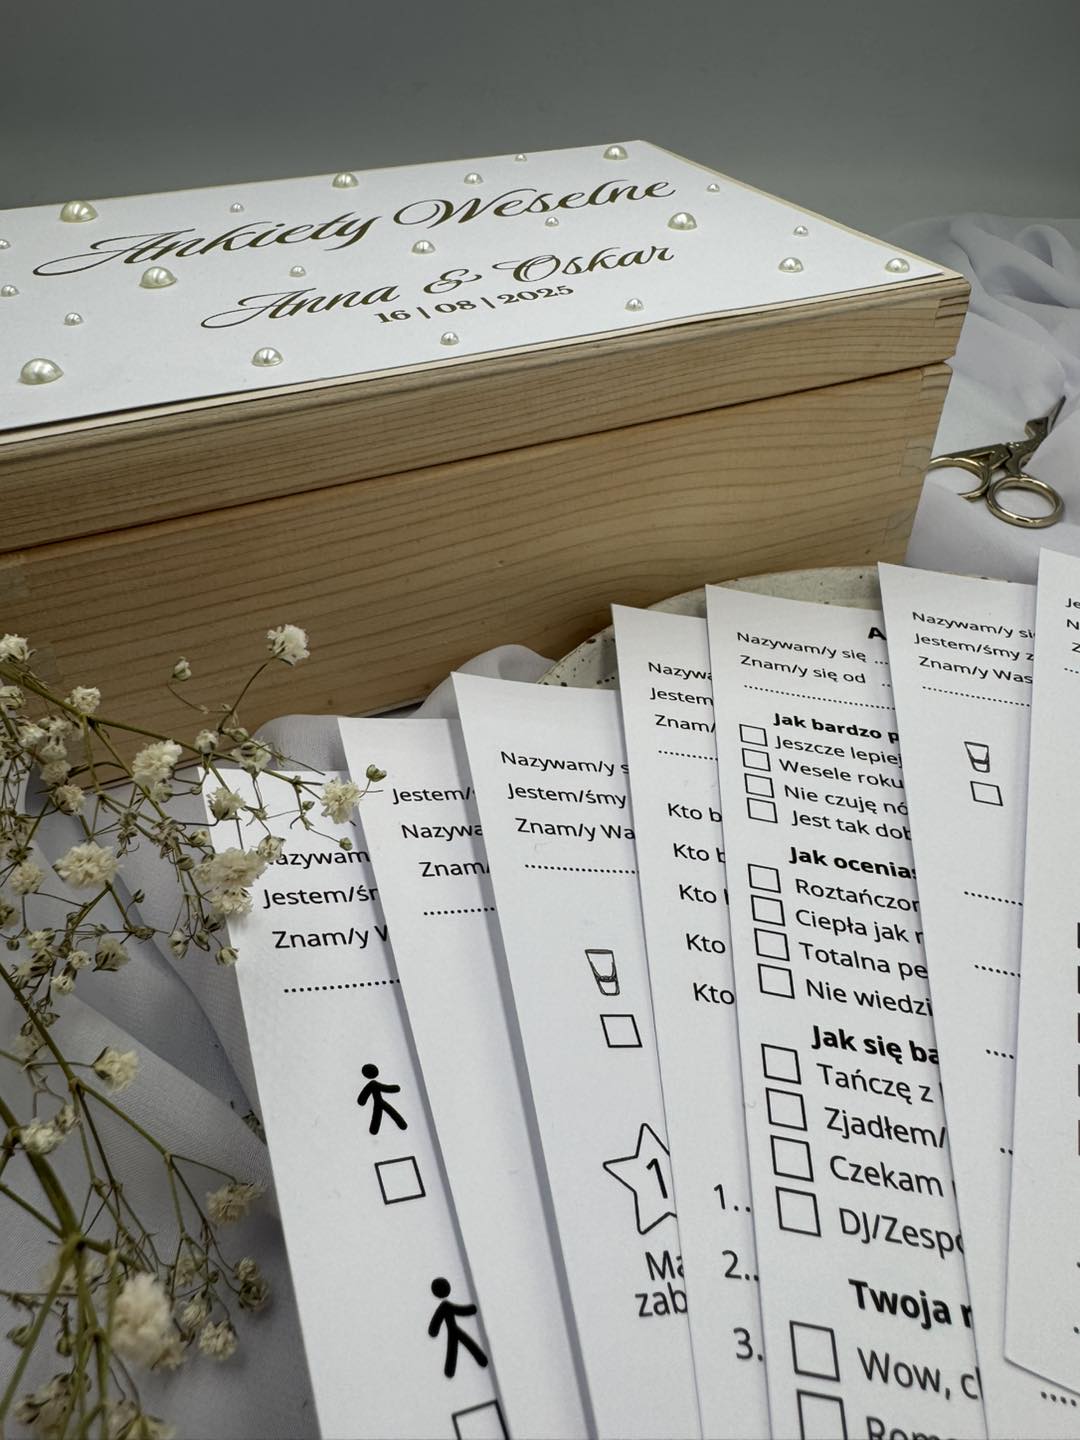 Ankiety Weselne
Anna & Oskar
16 | 08 | 2025
Jestem/śm
Znam/y W
Jestem/
Znam/
Nazywam/y s
Jestem/śmy
Znam/y Wa
1
Ma
zab
Jestem
Znam/
Kto b
Kto b
Kto
Kto
Kto
1..
2..
3.
A
Nazywam/y się ...
Znam/y się od
Jak bardzo p
Jeszcze lepiej
Wesele roku
Nie czuję nó
Jest tak dob
Jak ocenias
Roztańczon
Ciepła jak r
Totalna pe
Nie wiedzi
Jak się ba
Tańczę z
Zjadłem/
Czekam
DJ/Zespo
Twoja r
Wow, c
Rom
Nazywam/y si
Jestem/śmy z
Znam/y Was
Je
N
Z